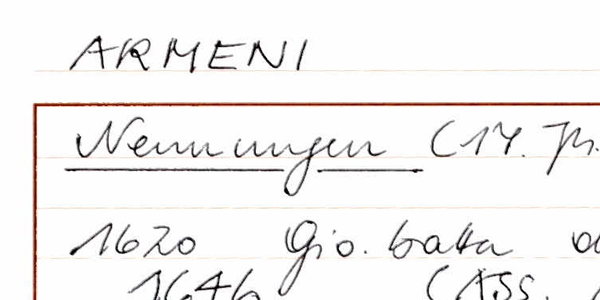 ARMENI
Nennungen (17. Jh.
1620 Gio. batta
1646 (Ass.